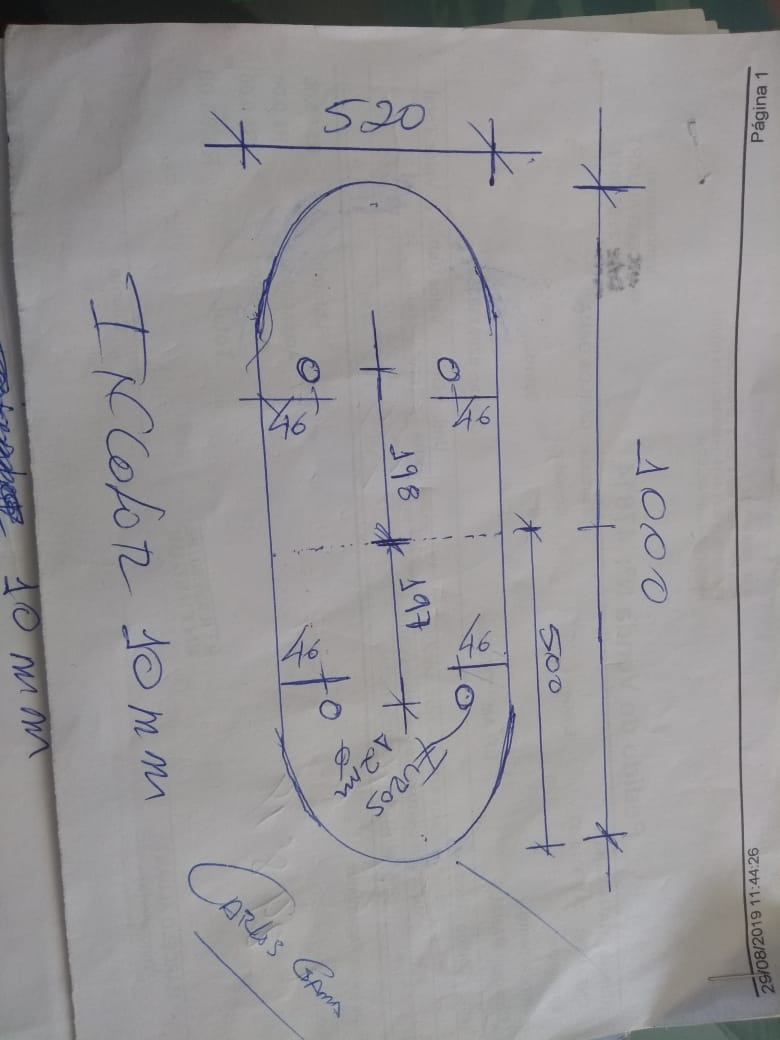 Página 1
29/08/2019 11:44:26
1000
500
520
46
46
198
197
46
46
FUROS
12 mm
INCOLOR 10 mm
CARLOS GAMA
10 mm